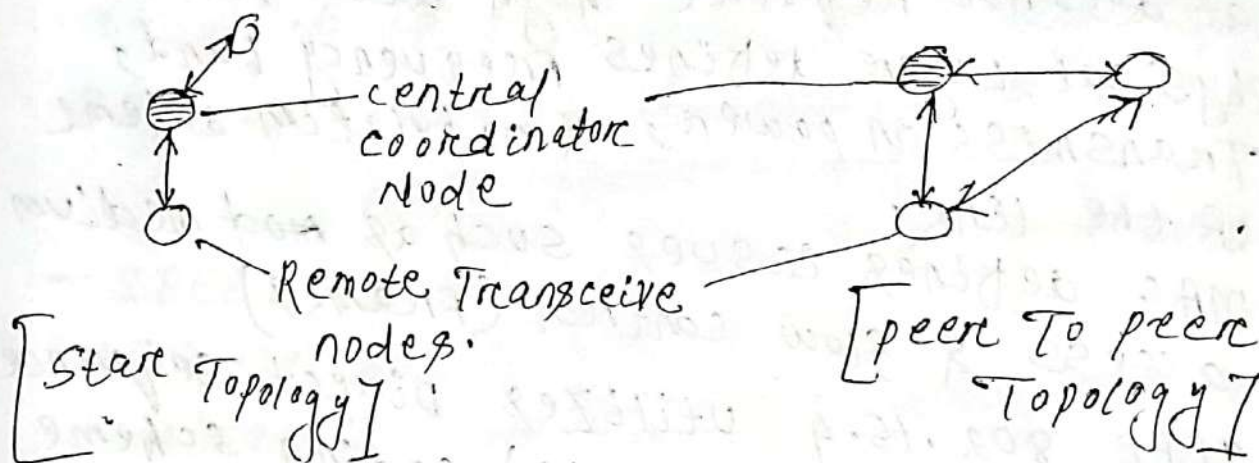 central
coordinator
Node
Remote Transceive
nodes.
[Star Topology]
[peer To peer
Topology]